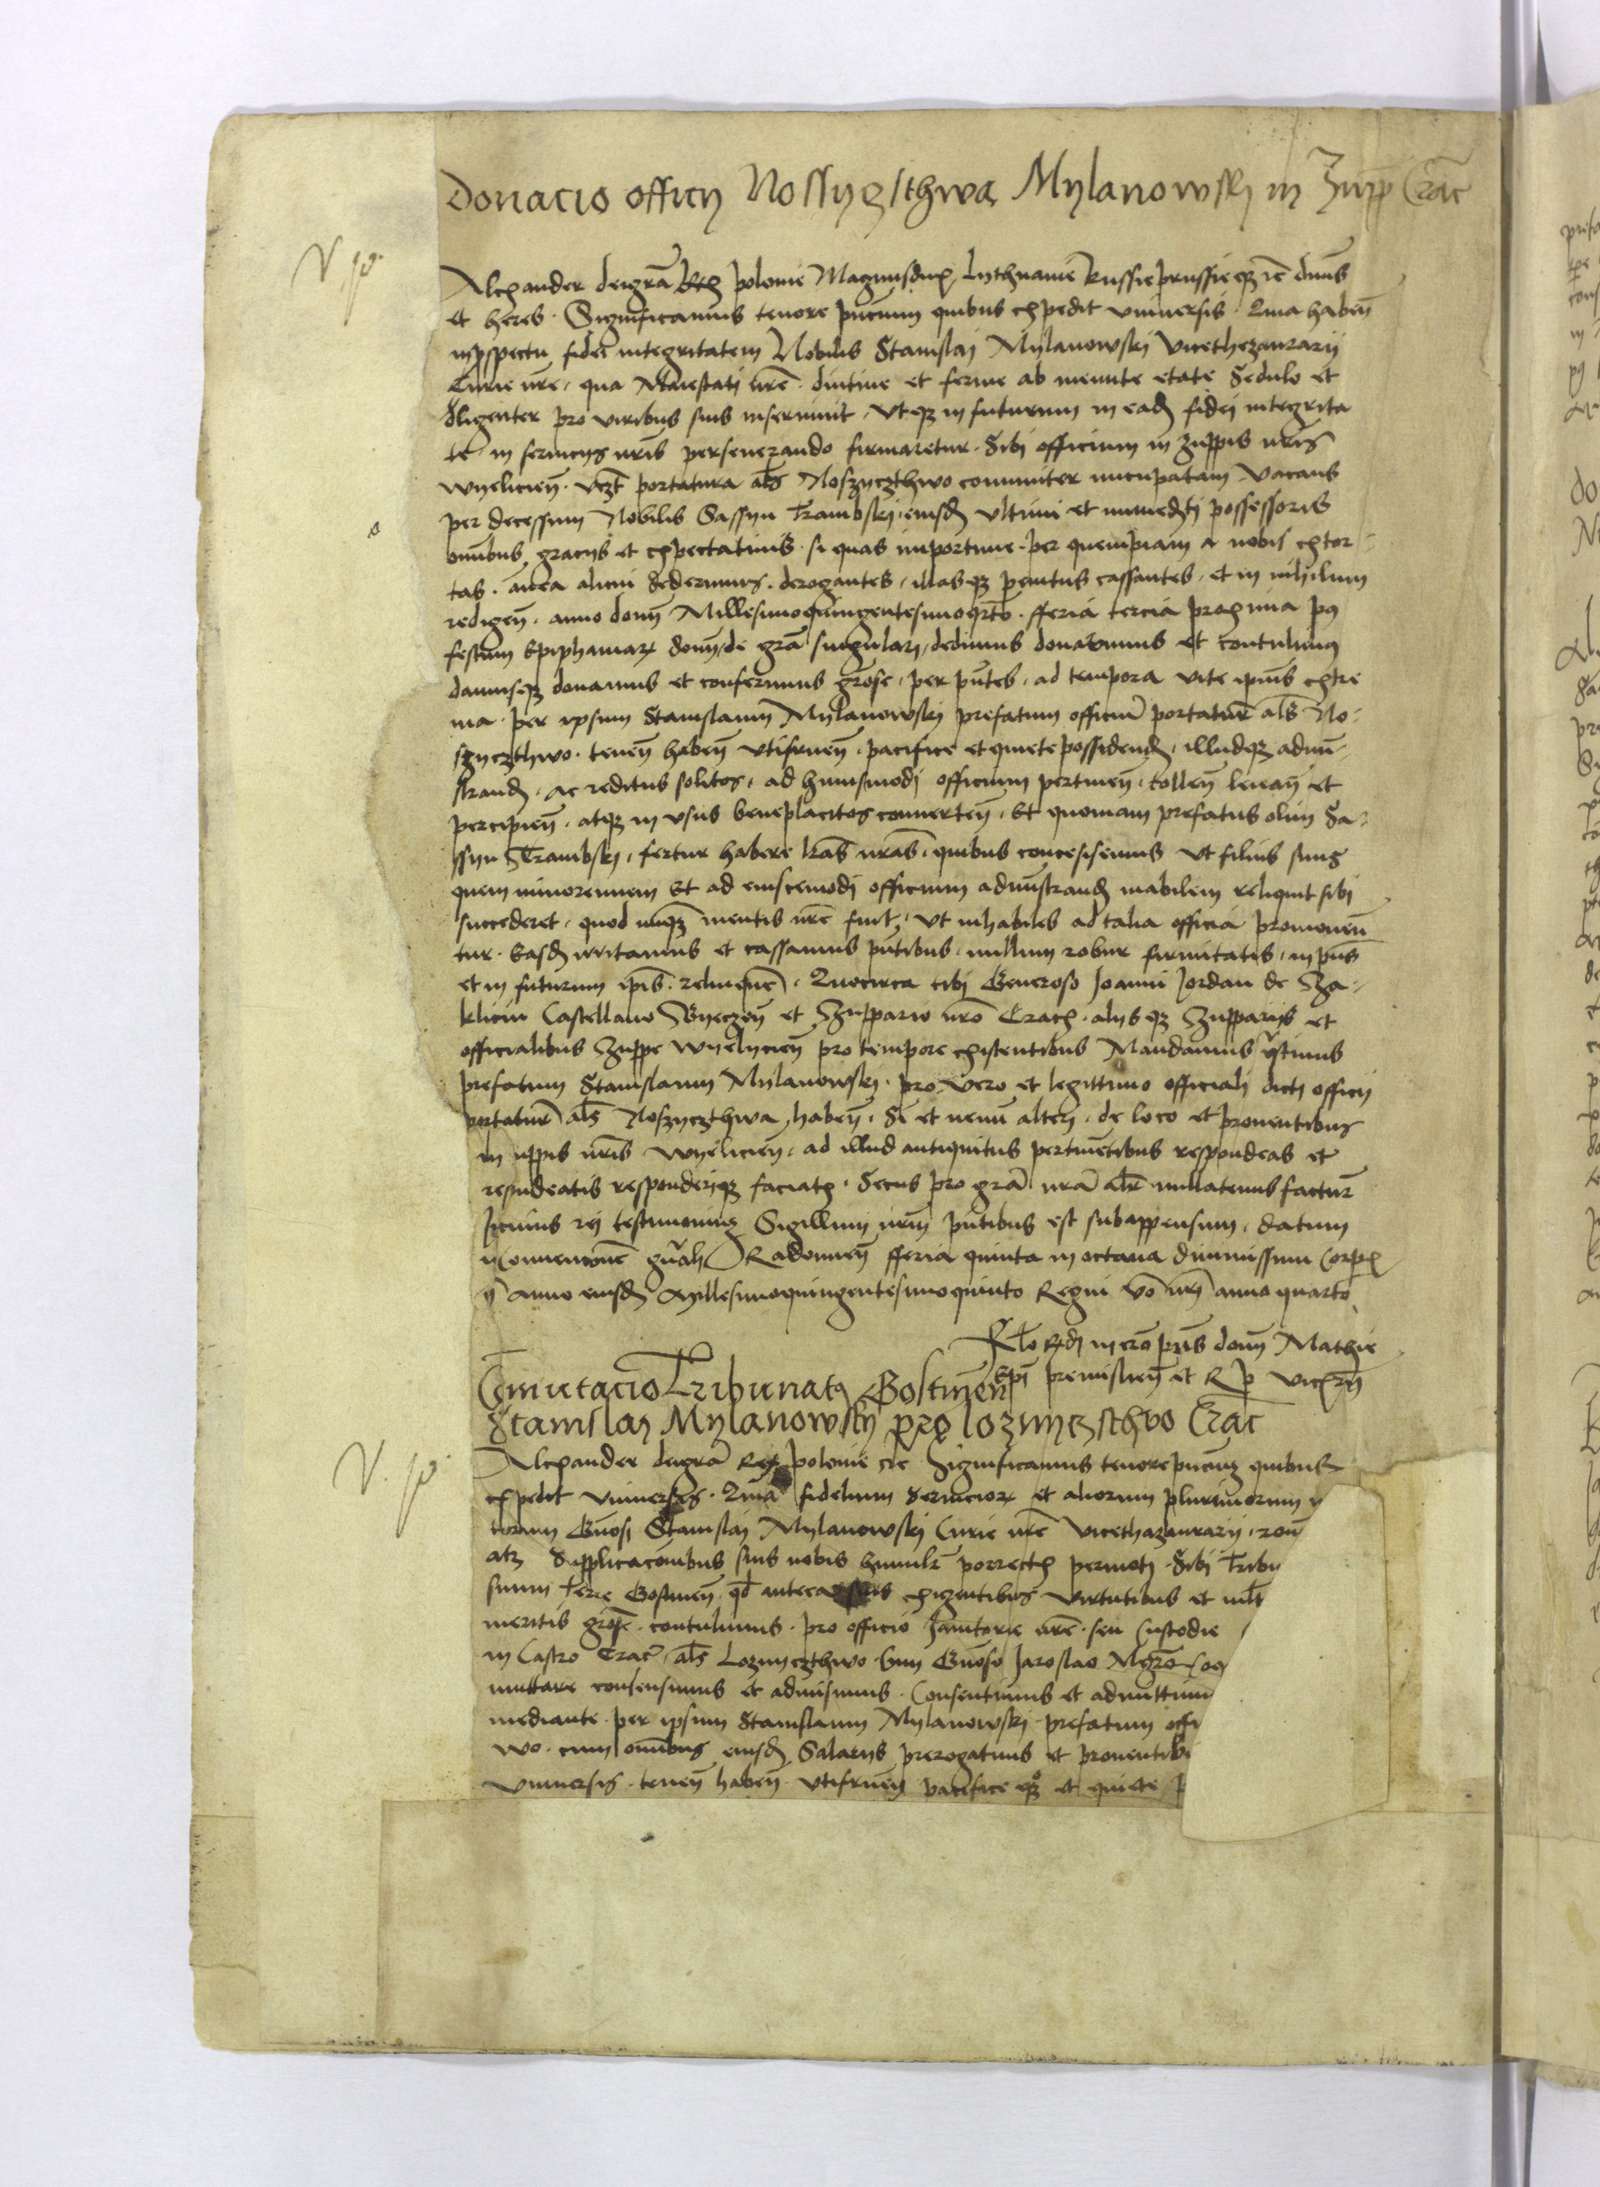 Donacio officij Nossyczsthwa Mylanowskj in Zupp Crac
Alexander deigrā Rex polonie Magnusdux Lythuanie Russie prussieqz ēc dn̄us
et heres. Significamus tenore pn̄cium quibus expedit vniuersis. Quia haben̄
in p̄spectu fidei integritatem Nobilis Stanislaj Mylanowskj Vicethezaurarij
Curie nr̄e, qua Maiestati nr̄e diutine et ferme ab ineunte etate sedulo et
diligenter pro viribus suis inseruiuit, vtqz in futurum in eadē fidej integrita
te in seruicijs nr̄is perseuerando firmaretur. Sibi officium in zuppis nr̄is
wyelicien̄. vzt portatura al̄s Noszyczthwo communiter nuncupatam vacans
per decessum Nobilis Sassyn Trambskj, eiusd̄ vltimi et immed̄ti possessoris
omnibus gracijs et expectatiuis si quas importune per quempiam a nobis extor
tas. antea alicui dederimus. derogantes, illasqz penitus cassantes, et in nihilum
redigen̄. anno domī Millesimoquingentesimoqr̄to. fferia tercia proxima pq
festum Epiphaniarꝝ domī, de grā singularj, dedimus donauimus et contulimus
damusqz donamus et conferimus gr̄ose, per pn̄tes, ad tempora vite ipius extre
ma. per ipsum Stanislaum Mylanowskj prefatum officiū portature al̄s No-
szyczthwo. tenen̄ haben̄ vtifruen̄. pacifice et quiete possidend̄, illudqz admī-
strand̄. ac reditus solitos, ad huiusmodi officium pertinen̄. tollen̄ leuan̄ et
percipien̄. atqz in vsus beneplacitos conuerten̄. Et quoniam prefatus olim Sa-
ssyn Trambskj, fertur habere lr̄as nr̄as, quibus concesissemus vt filius suus
quem minorennem et ad eiuscemodi officium administrand̄ inabilem reliquit sibi
succederet, quod nuqz mentis nr̄e fuit, vt inhabiles ad talia officia promouen̄
tur. Easd̄ irritamus et cassamus pn̄tibus, nullum robur firmitatis, in pn̄s
et in futurum ip̄is relinquen̄. Quocirca tibi Generoso Joanni Jordan de Za-
kliczin Castellano Byeczen̄ et Zuppario nr̄o Crac, alijsqz Zupparijs et
officialibus Zuppe wyelycien̄ pro tempore existentibus Mandamus
prefatum Stanislaum Mylanowskj. pro vero et legittimo officialj dictj officij
portature al̄s Noszyczthwa, haben̄. Sic et nemī alterj, de loco et prouentibus
in uppis nr̄is wyelicien̄, ad illud antiquitus pertinētibus respondeas et
respondeatis responderiqz faciatis. Secus pro grā nr̄a alr nullatenus factur̄
Jn cuius rej testimonium Sigillum nr̄um pn̄tibus est subappensum. Datum
in Conuencione gn̄ali Radomien̄ fferia quinta in octaua diuinissimi Corp̄is
x̄ anno eiusd̄ Millesimoquingentesimoquinto Regni vo nr̄i anno quarto
Rlo Rd̄i in cro pr̄is dom̄ Mathie
Ep̄i premislien̄ et R P vicꝫcn̄
Comutacio Tribunatꝰ Gostinen
Stanislaj Mylanowskj pro lozniczsthwo Crac
Alexander deigrā Rex polonie etc Significamus tenore pn̄cium quibus
expedit vniuersis. Quia fidelium seruiciorꝝ et aliorum plurimorum
torum Gn̄osi Stanislaj Mylanowskj Curie nr̄e vicethazaurarij,
atqz supplicacionibus suis nobis humilr̄ porrectis permoti. Sibi Tribu
suum terre Gostinen̄, qd̄ antea exigentibus virtutibus et
meritis grose. contulimus. pro officio Janitorie nr̄e seu Custodie
in Castro Crac, al̄s Lozniczthwo cum Gn̄oso Jaroslao
muttare consensimus et admisimus. Consentimus et admittim
mediante. per ipsum Stanislaum Mylanowskj prefatum offi
wo. cum omībus eiusd̄ Salarijs prerogatiuis et prouentib
vniuersis. tenen̄ haben̄ vtifruen̄ pacifice eqꝫ et quiete p